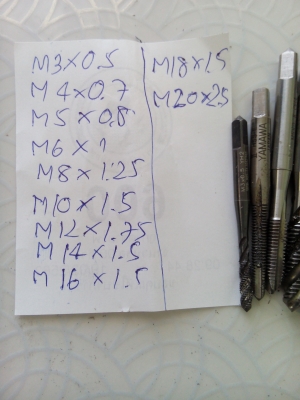 M3×0.5
M4×0.7
M5×0.8
M6×1
M8×1.25
M10×1.5
M12×1.75
M14×1.5
M16×1.5
M18×1.5
M20×2.5
YAMAWA